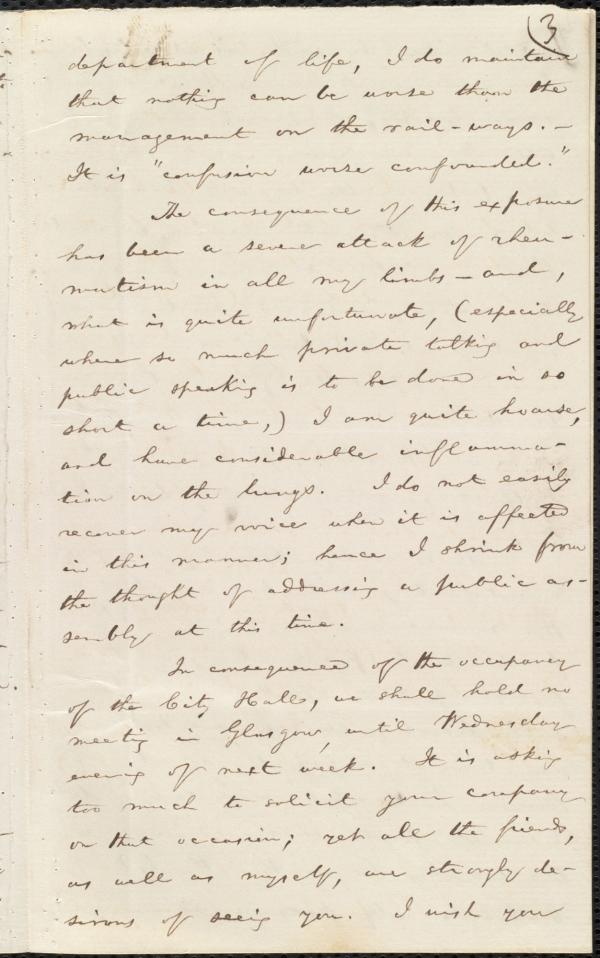 (3
department of life, I do maintain
that nothing can be worse than the
management on the rail-ways. –
It is "confusion worse confounded."
The consequence of this exposure
has been a severe attack of rheu-
matism in all my limbs – and,
what is quite unfortunate, (especially
where so much private talking and
public speaking is to be done in so
short a time,) I am quite hoarse,
and have considerable inflamma-
tion on the lungs. I do not easily
recover my voice when it is affected
in this manner; hence I shrink from
the thought of addressing a public as-
sembly at this time.
In consequence of the occupancy
of the City Halls, we shall hold no
meeting in Glasgow, until Wednesday
evening of next week. It is asking
too much to solicit your company
on that occasion; yet all the friends,
as well as myself, are strongly de-
sirous of seeing you. I wish you